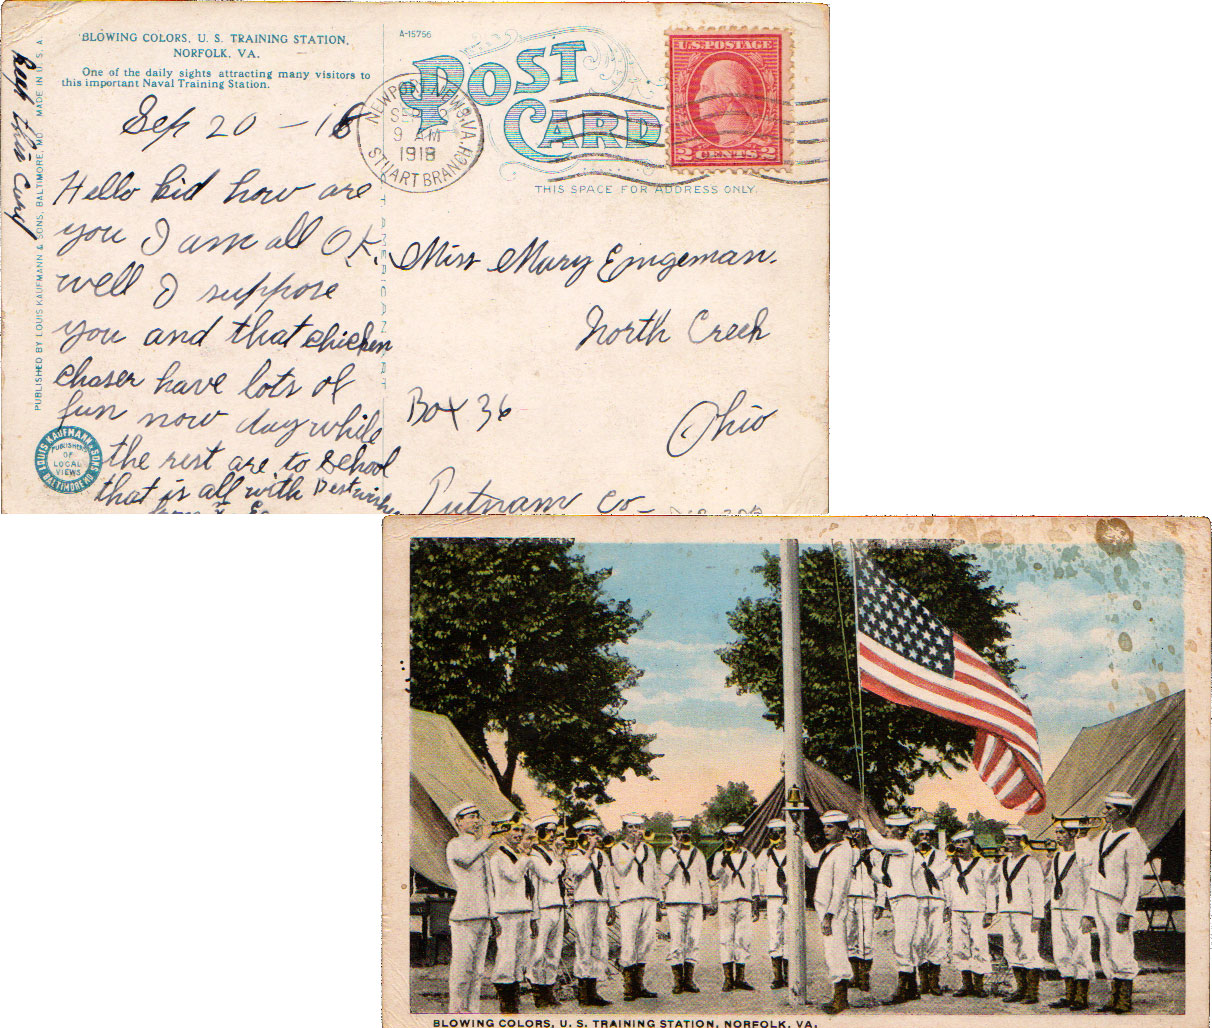 BLOWING COLORS, U. S. TRAINING STATION,
NORFOLK, VA.
One of the daily sights attracting many visitors to
this important Naval Training Station.
A-15756
POST
CARD
NEWPORT NEWS, VA.
SEP
9 AM
1918
STUART BRANCH
U.S. POSTAGE
2 CENTS 2
THIS SPACE FOR ADDRESS ONLY.
PUBLISHED BY LOUIS KAUFMANN & SONS, BALTIMORE, MD. MADE IN U. S. A.
this
Sep 20 - 18
Hello kid how are
you I am all O.K.
well I suppose
you and that chicken
chaser have lots of
fun now day while
the rest are to school
that is all with Best wishes
LOUIS KAUFMANN & SONS
PUBLISHERS
OF
LOCAL
VIEWS
BALTIMORE MD.
Miss Mary Emgeman.
North Creek
Box 36
Ohio
Putnam Co-
BLOWING COLORS, U. S. TRAINING STATION, NORFOLK, VA.